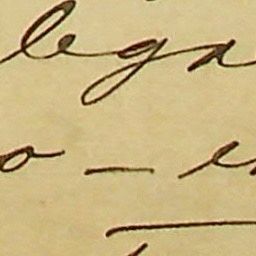 lega
o – e